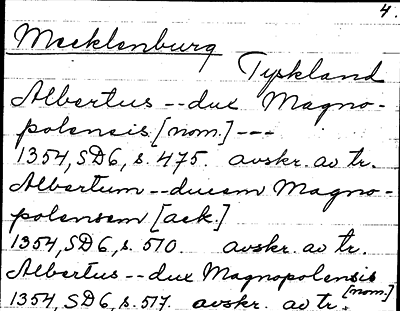 4.
Mecklenburg
Tyskland
Albertus -- dux Magno-
polensis [nom.] ---
1354, SD6, s. 475. avskr. av tr.
Albertum -- ducem Magno-
polensem [ack.]
1354, SD6, s. 510. avskr. av tr.
Albertus -- dux Magnopolensis
[nom.]
1354, SD6, s. 517. avskr. av tr.